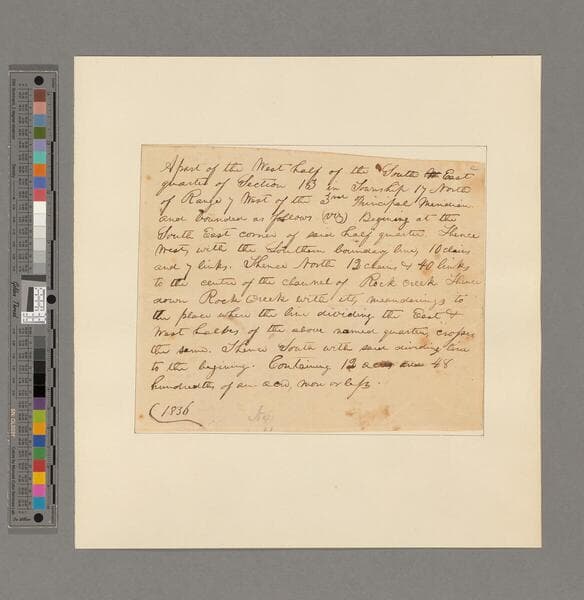 A part of the West half of the South East
quarter of Section 13 in Township 17 North
of Range 7 West of the 3rd Principal Meridian
and bounded as follows (viz) Begining at the
South East corner of said half quarter. Thence
West, with the Southern boundary line, 10 chains
and 7 links. Thence North 12 chains & 40 links
to the centre of the channel of Rock Creek Thence
down Rock Creek with its meanderings to
the place where the line dividing the East &
West halves of the above named quarter, crosses
the same. Thence South with said dividing line
to the begining. Containing 12 acres 48
hundredths of an acre, more or less.
(1836